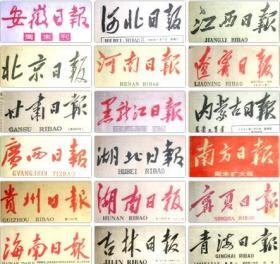 安徽日报
周末刊
河北日报
HEBEI RIBAO
江西日报
JIANGXI RIBAO
北京日报
河南日报
HENAN RIBAO
遼寧日報
LIAONING RIBAO
甘肃日報
GANSU RIBAO
黑龙江日報
内蒙古日報
廣西日報
GVANGJSIH YIZBAO
湖北日報
HUBEI RIBAO
南方日報
周末扩大版
貴州日報
GUIZHOU RIBAO
湖南日报
HUNAN RIBAO
寧夏日報
NINGXIA RIBAO
海南日報
HAINAN RIBAO
吉林日報
JILIN RIBAO
青海日報
QINGHAI RIBAO